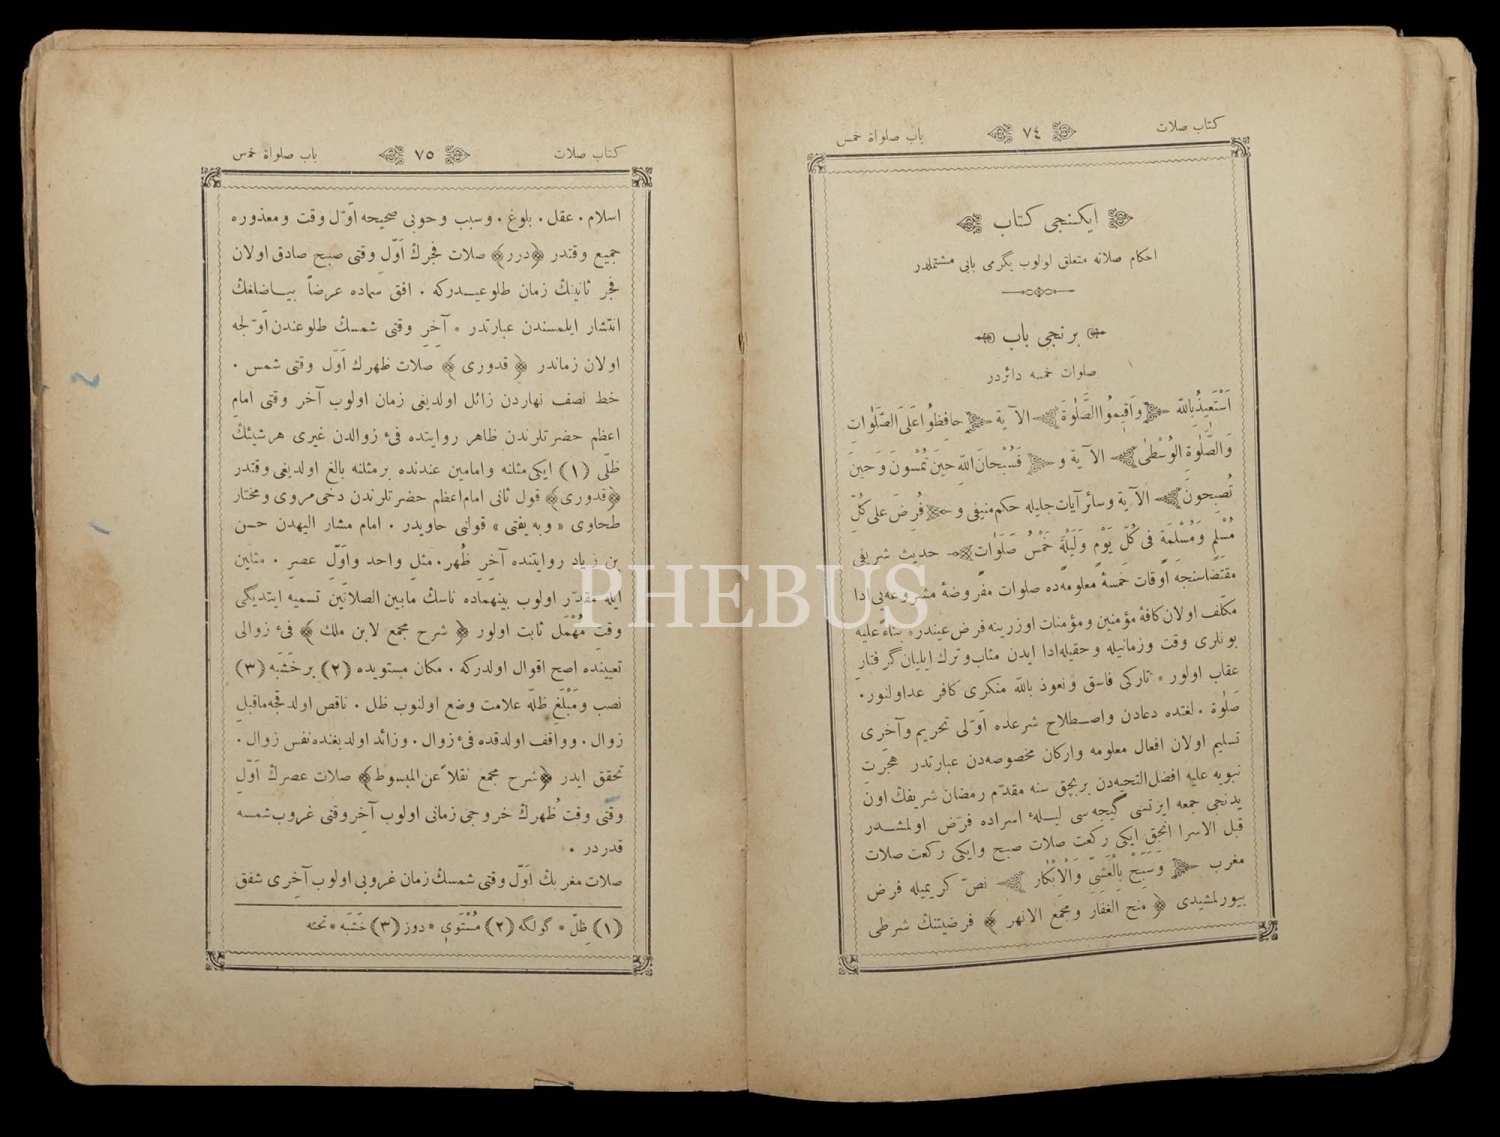 كتاب صلات ٧٤ باب صلواة خمس
ايكنجی كتاب
احكام صلاته متعلق اولوب يگرمی بابی مشتملدر
برنجی باب
صلوات خمسه دائردر
اَسْتَعيذُبِاللّٰه ﴿وَاَقيمُواالصَّلٰوةَ﴾ الآية ﴿حافِظُواعَلَى الصَّلَواتِ
وَالصَّلٰوةِ الْوُسْطٰى﴾ الآية و ﴿فَسُبْحانَ اللّٰهِ حينَ تُمْسُونَ وَحينَ
تُصْبِحونَ﴾ الآية وسائر آيات جليله حكم منيفی و ﴿فُرِضَ عَلى كُلِّ
مُسْلِمٍ وَمُسْلِمَةٍ فى كُلِّ يَوْمٍ وَلَيْلَةٍ خَمْسُ صَلَواتٍ﴾ حديث شريفی
مقتضاسنجه اوقات خمسهٔ معلومه‌ده صلوات مفروضهٔ مشروعه‌يی ادا
مكلّف اولان كافهٔ مؤمنين ومؤمنات اوزرينه فرض عيندر * بناءً عليه
بونلری وقت وزمانيله وحقيله ادا ايدن مثاب وترك ايليان گرفتارِ
عقاب اولور * تاركی فاسق ونعوذ بالله منكری كافر عداولنور.
صَلٰوة. لغتده دعادن واصطلاح شرعده اوّلی تحريم وآخری
تسليم اولان افعال معلومه واركان مخصوصه‌دن عبارتدر هجرت
نبويه عليه افضل التحيه‌دن بربچق سنه مقدّم رمضان شريفك اون
يدنجی جمعه ايرتسی گيجه‌سی ليلهٔ اسراده فرض اولمشدر
قبل الاسرا انجق ايكی ركعت صلات صبح وايكی ركعت صلات
مغرب ﴿وَسَبِّحْ بِالْعَشِىِّ وَالْاِبْكار﴾ نصّ كريميله فرض
بيورلمشيدی ﴿منح الغفار ومجمع الانهر﴾ فرضيتنك شرطی
كتاب صلات ٧٥ باب صلواة خمس
اسلام. عقل. بلوغ. وسبب وجوبی صحيحه اوّل وقت ومعذوره
جميع وقتدر ﴿درر﴾ صلات فجرك اَوّلِ وقتی صبح صادق اولان
فجر ثانينك زمان طلوعيدركه. افق سماده عرضاً بياضلغك
انتشار ايلمسندن عبارتدر * آخرِ وقتی شمسك طلوعندن اوّلجه
اولان زماندر ﴿قدوری﴾ صلات ظهرك اَوّل وقتی شمس.
خط نصف نهاردن زائل اولديغی زمان اولوب آخر وقتی امام
اعظم حضرتلرندن ظاهر روايتده فیٔ زوالدن غيری هرشيئك
ظلّی (١) ايكی مثلنه وامامين عندنده برمثلنه بالغ اولديغی وقتدر
﴿قدوری﴾ قول ثانی امام اعظم حضرتلرندن دخی مروی ومختار
طحاوی «وبه يفتی» قولنی حاويدر. امام مشار اليهدن حسن
بن زياد روايتنده آخرِ ظُهر. مثلِ واحد واَوّلِ عصرِ. مثلين
ايله مقدّر اولوب بينهماده ناسك مابين الصلاتَين تسميه ايتديگی
وقتِ مُهْمَل ثابت اولور ﴿شرح مجمع لابن ملك﴾ فیٔ زوالی
تعيينده اصح اقوال اولدركه. مكان مستويده (٢) برخَشَبَه (٣)
نصب ومَبْلَغِ ظلّه علامت وضع اولنوب ظل. ناقص اولدقجه ماقبلِ
زوال. وواقف اولدقده فیٔ زوال. وزائد اولديغنده نفس زوال.
تحقق ايدر ﴿شرح مجمع نقلاً عن المبسوط﴾ صلات عصرك اَوّلِ
وقتی وقت ظُهرك خروجی زمانی اولوب آخر وقتی غروب شمسه
قدردر.
صلات مغربك اَوّل وقتی شمسك زمان غروبی اولوب آخری شفق
(١) ظِلّ * گولگه (٢) مُسْتَوِی * دوز (٣) خَشَبَه * تخته
PHEBUS